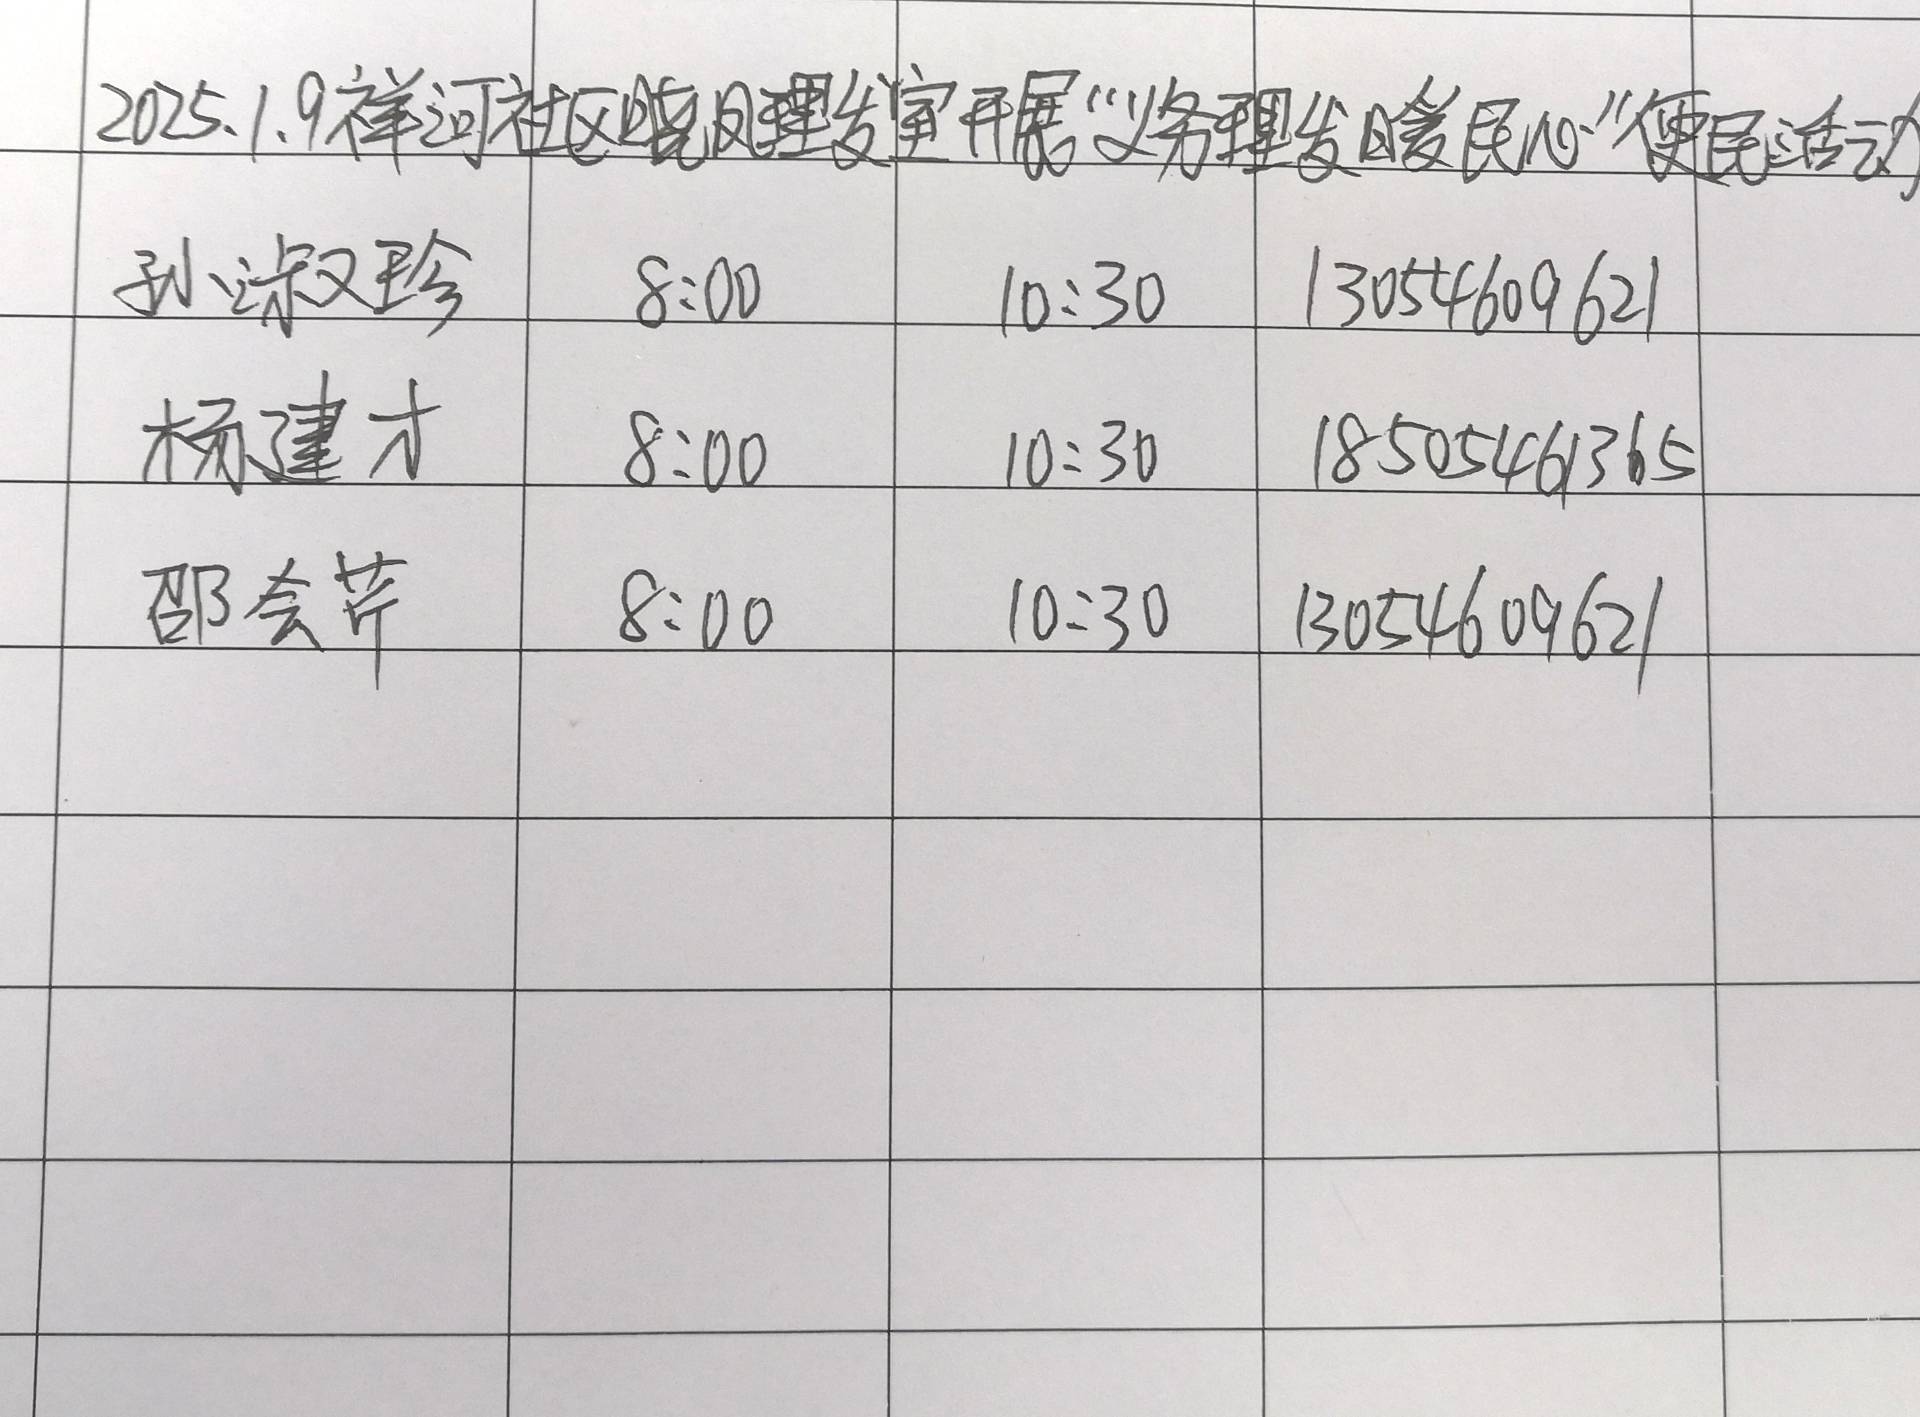 2025.1.9祥河社区晓风理发室开展“义务理发暖民心”便民活动
孙淑珍 8:00 10:30 13054609621
杨建才 8:00 10:30 18505461365
邵会芹 8:00 10:30 13054609621